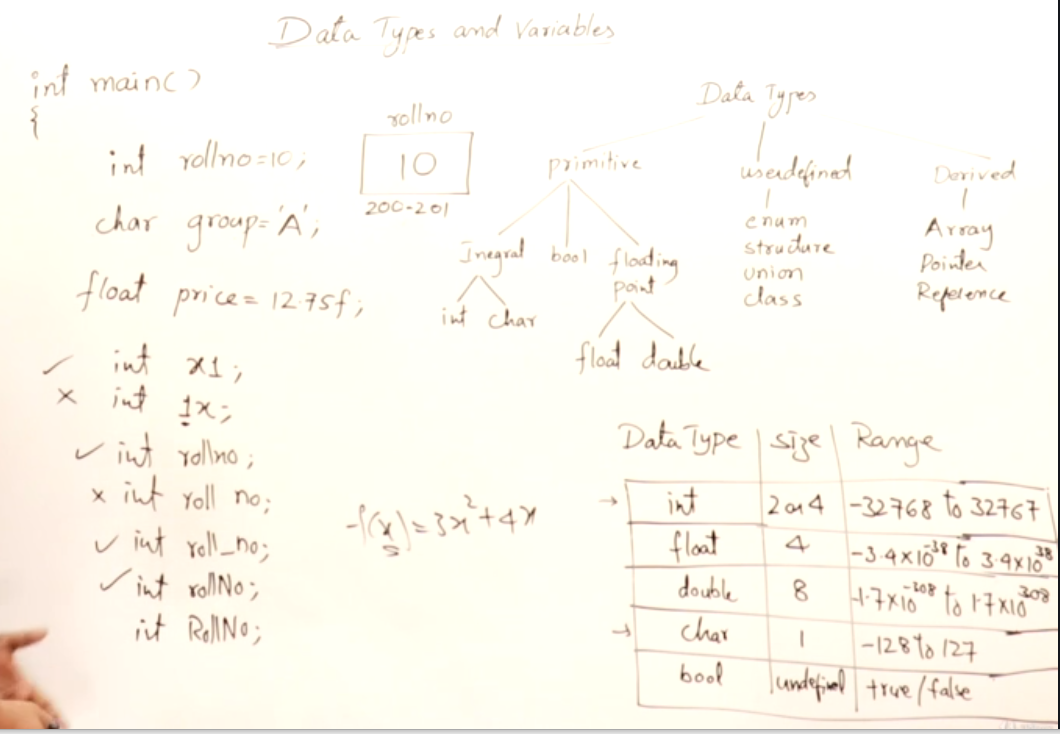 Data Types and Variables
int main()
{
int rollno=10;
char group='A';
float price=12.75f;
✓ int x1;
× int 1x;
✓ int rollno;
× int roll no;
✓ int roll_no;
✓ int rollNo;
int RollNo;
rollno
10
200-201
f(x)=3x²+4x
Data Types
primitive userdefined Derived
Inegral bool floating point
int char
float double
enum
structure
union
class
Array
Pointer
Reference
Data Type size Range
→ int 2 or 4 -32768 to 32767
float 4 -3.4×10⁻³⁸ to 3.4×10³⁸
double 8 -1.7×10⁻³⁰⁸ to 1.7×10³⁰⁸
→ char 1 -128 to 127
bool undefined true/false